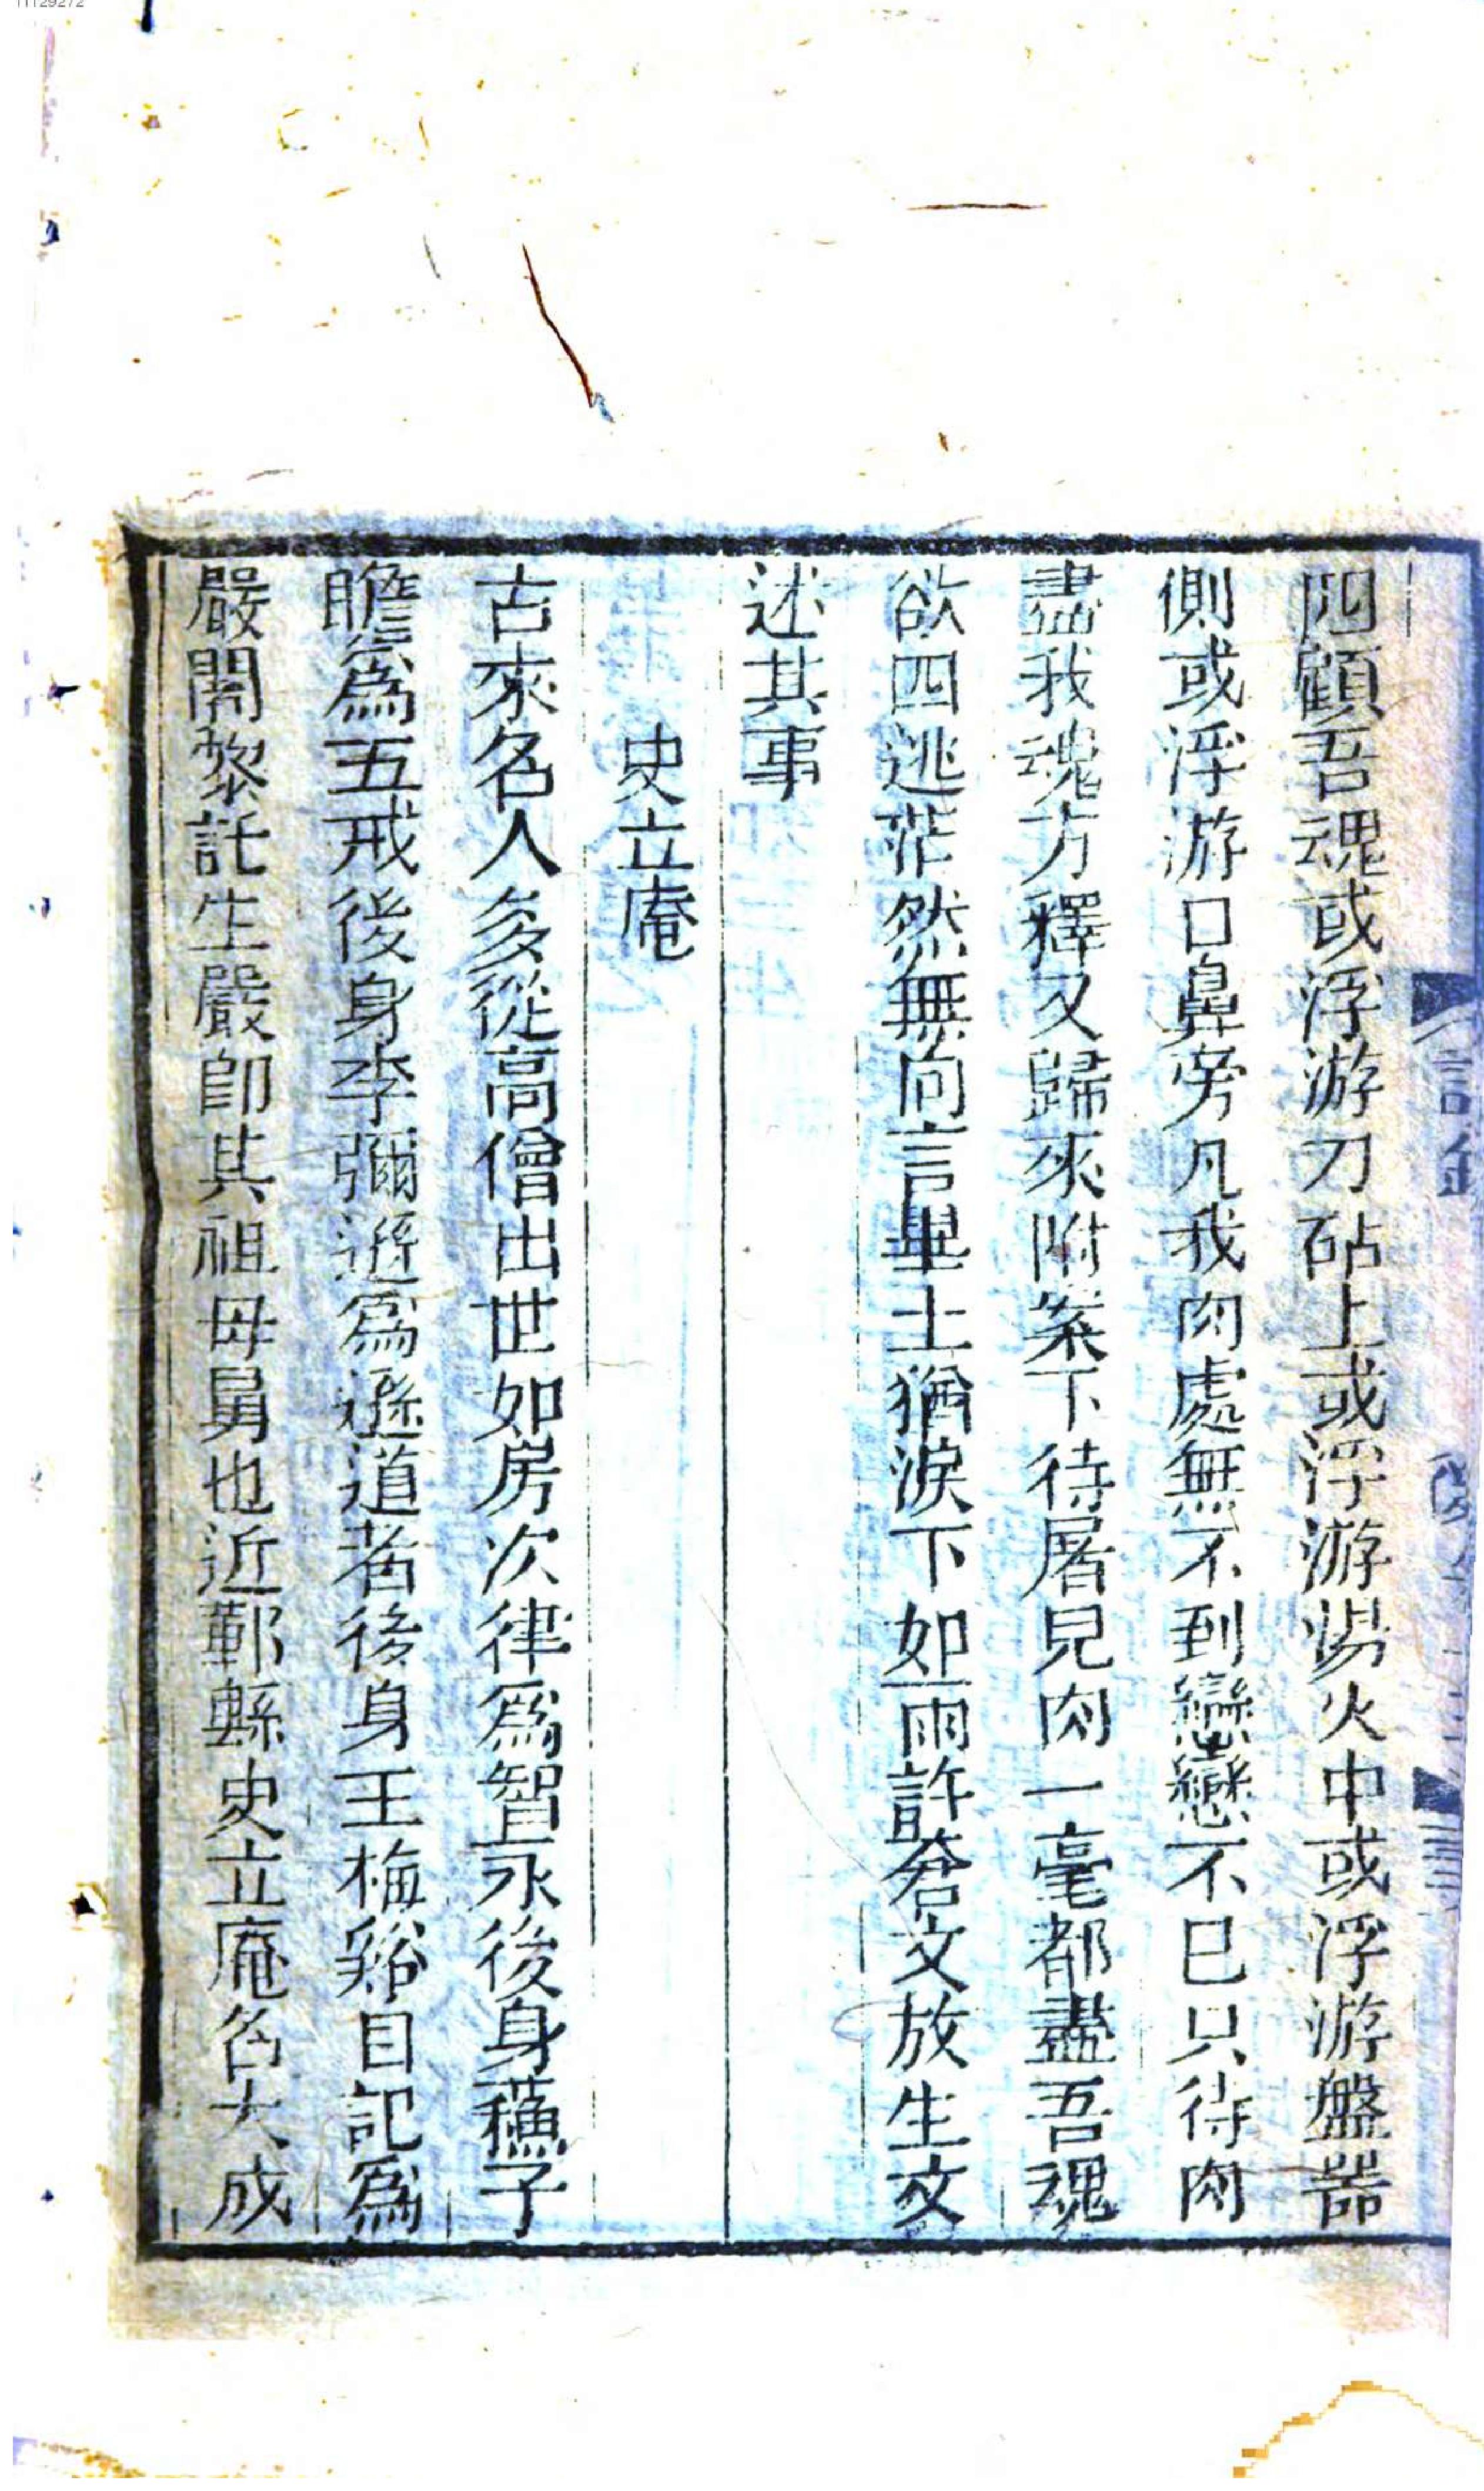 11129272
四顧吾魂或浮游刀砧上或浮游湯火中或浮游盤噐
側或浮游口鼻旁凡我肉處無不到戀戀不已只待肉
盡我魂方釋又歸來附案下待屠見肉一毫都盡吾魂
欲四逃茫然無向言畢士猶淚下如雨許耷文放生文
述其事
史立庵
古來名人多從高僧出世如房次律爲智永後身蘓子
瞻爲五戒後身李彌遜爲遜道者後身王梅谿自記爲
嚴闍黎託生嚴卽其祖母舅也近鄞縣史立庵名大成